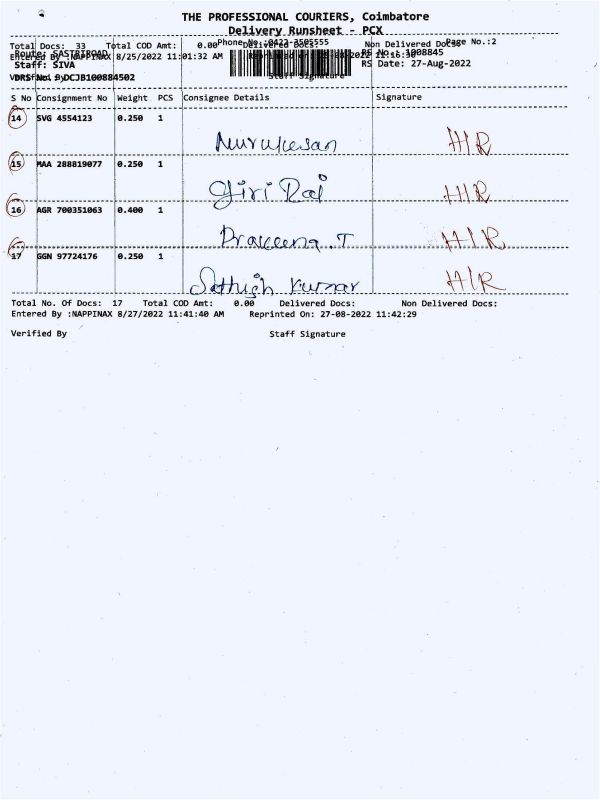 THE PROFESSIONAL COURIERS, Coimbatore
Delivery Runsheet - PCX
Total Docs: 33 Total COD Amt: 0.00 Delivered Docs: Non Delivered Docs:
Phone No.:0422-3505555 Page No.:2
Route: SASTRIROAD RS No.: 1008845
Entered By :NAPPINAX 8/25/2022 11:01:32 AM
Staff: SIVA RS Date: 27-Aug-2022
Verified By Staff Signature
DRS No.: DCJB100884502
S No Consignment No Weight PCS Consignee Details Signature
14 SVG 4554123 0.250 1
Murukesan HIR
15 MAA 288819077 0.250 1
Giri Raj HIR
16 AGR 700351063 0.400 1
Praveena .T HIR
17 GGN 97724176 0.250 1
Sathish Kumar HIR
Total No. Of Docs: 17 Total COD Amt: 0.00 Delivered Docs: Non Delivered Docs:
Entered By :NAPPINAX 8/27/2022 11:41:40 AM Reprinted On: 27-08-2022 11:42:29
Verified By Staff Signature